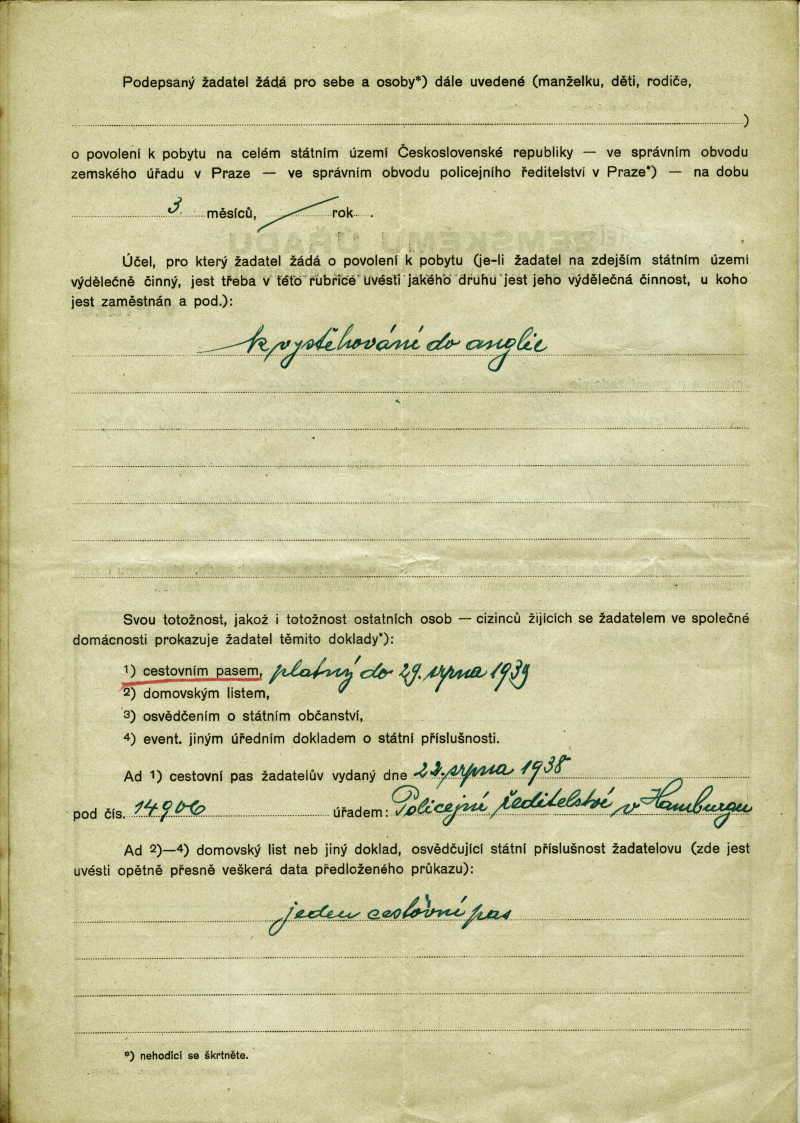 Podepsaný žadatel žádá pro sebe a osoby*) dále uvedené (manželku, děti, rodiče,
)
o povolení k pobytu na celém státním území Československé republiky — ve správním obvodu
zemského úřadu v Praze — ve správním obvodu policejního ředitelství v Praze*) — na dobu
3 měsíců, rok .
Účel, pro který žadatel žádá o povolení k pobytu (je-li žadatel na zdejším státním území
výdělečně činný, jest třeba v této rubrice uvésti jakého druhu jest jeho výdělečná činnost, u koho
jest zaměstnán a pod.):
k vystěhování do anglie
Svou totožnost, jakož i totožnost ostatních osob — cizinců žijících se žadatelem ve společné
domácnosti prokazuje žadatel těmito doklady*):
1) cestovním pasem, platný do 29. srpna 1939
2) domovským listem,
3) osvědčením o státním občanství,
4) event. jiným úředním dokladem o státní příslušnosti.
Ad 1) cestovní pas žadatelův vydaný dne srpna 1938
pod čís. 14906 úřadem: Policejní ředitelství v Hamburgu
Ad 2)—4) domovský list neb jiný doklad, osvědčující státní příslušnost žadatelovu (zde jest
uvésti opětně přesně veškerá data předloženého průkazu):
jeden cestovní pas
*) nehodící se škrtněte.